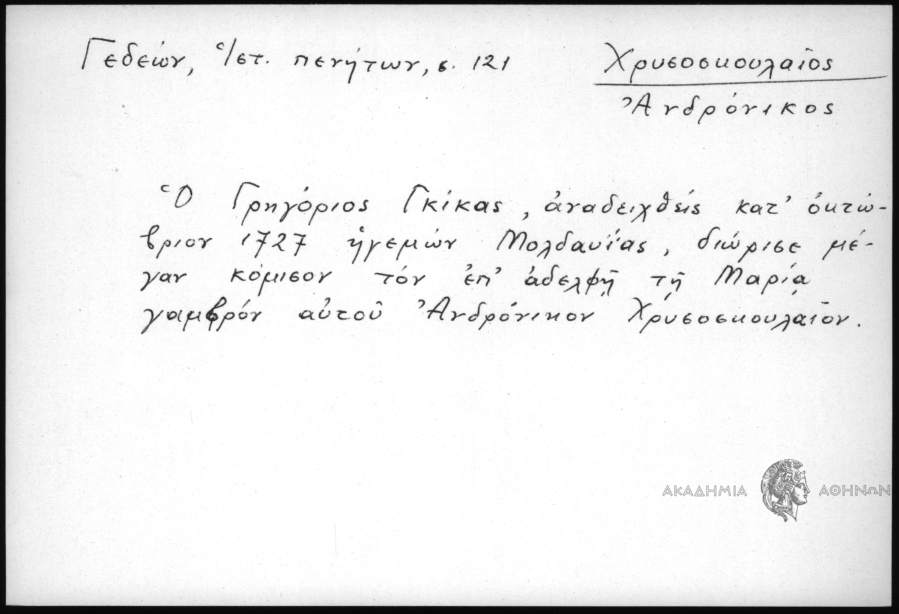 Γεδεών, Ἱστ. πενήτων, σ. 121
Χρυσοσκουλαῖος
Ἀνδρόνικος
Ὁ Γρηγόριος Γκίκας, ἀναδειχθείς κατ' ὀκτώ-
βριον 1727 ἡγεμών Μολδαυΐας, διώρισε μέ-
γαν κόμισον τόν ἐπ' ἀδελφῇ τῇ Μαρίᾳ
γαμβρόν αὐτοῦ Ἀνδρόνικον Χρυσοσκουλαῖον.
ΑΚΑΔΗΜΙΑ ΑΘΗΝΩΝ